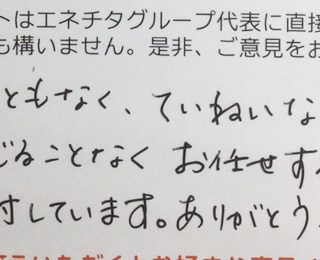 トはエネチタグループ代表に直接
も構いません。是非、ご意見をお
ともなく、ていねいな
じることなく お任せする
付しています。ありがとう